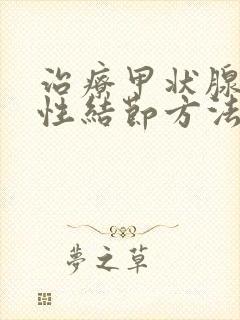 治療甲状腺
性結節方法
夢之草